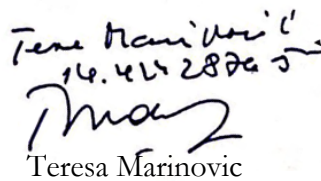 Tere Marinović
14.424 287-5
Teresa Marinovic